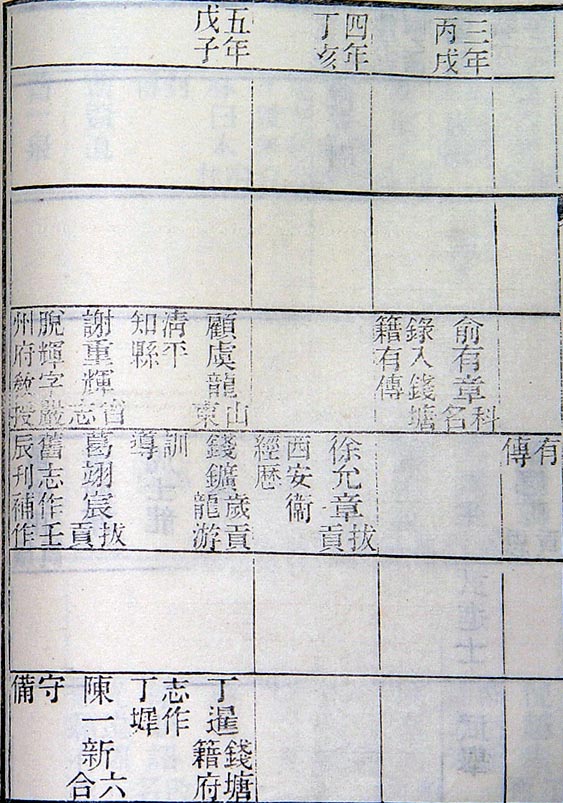 三年
丙戌
四年
丁亥
五年
戊子
俞有章
科
名
錄入錢塘
籍有傳
顧虞龍
山
東
清平
知縣
謝重輝
舊
志
脫輝字嚴
州府教授
有
傳
徐允章
拔
貢
西安衞
經歷
錢鑛
歲貢
龍游
訓
導
葛翊宸
拔
貢
舊志作壬
辰刋補作
丁暹
錢塘
籍府
志作
丁墀
陳一新
六
合
守
備